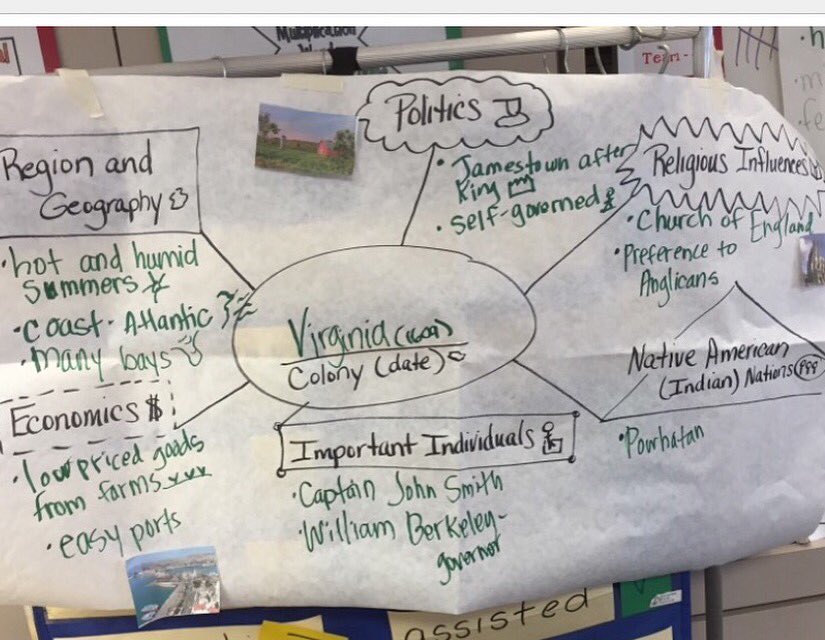 Multiplication
Team-
Politics
• Jamestown after
King
• self-governed
Region and
Geography
• hot and humid
summers
• coast - Atlantic
• many bays
Religious Influences
• Church of England
• Preference to
Anglicans
Virginia
Colony (date)
Native American
(Indian) Nations
• Powhatan
Economics $
• low priced goods
from farms
• easy ports
Important Individuals
• Captain John Smith
• William Berkeley-
governor
assisted